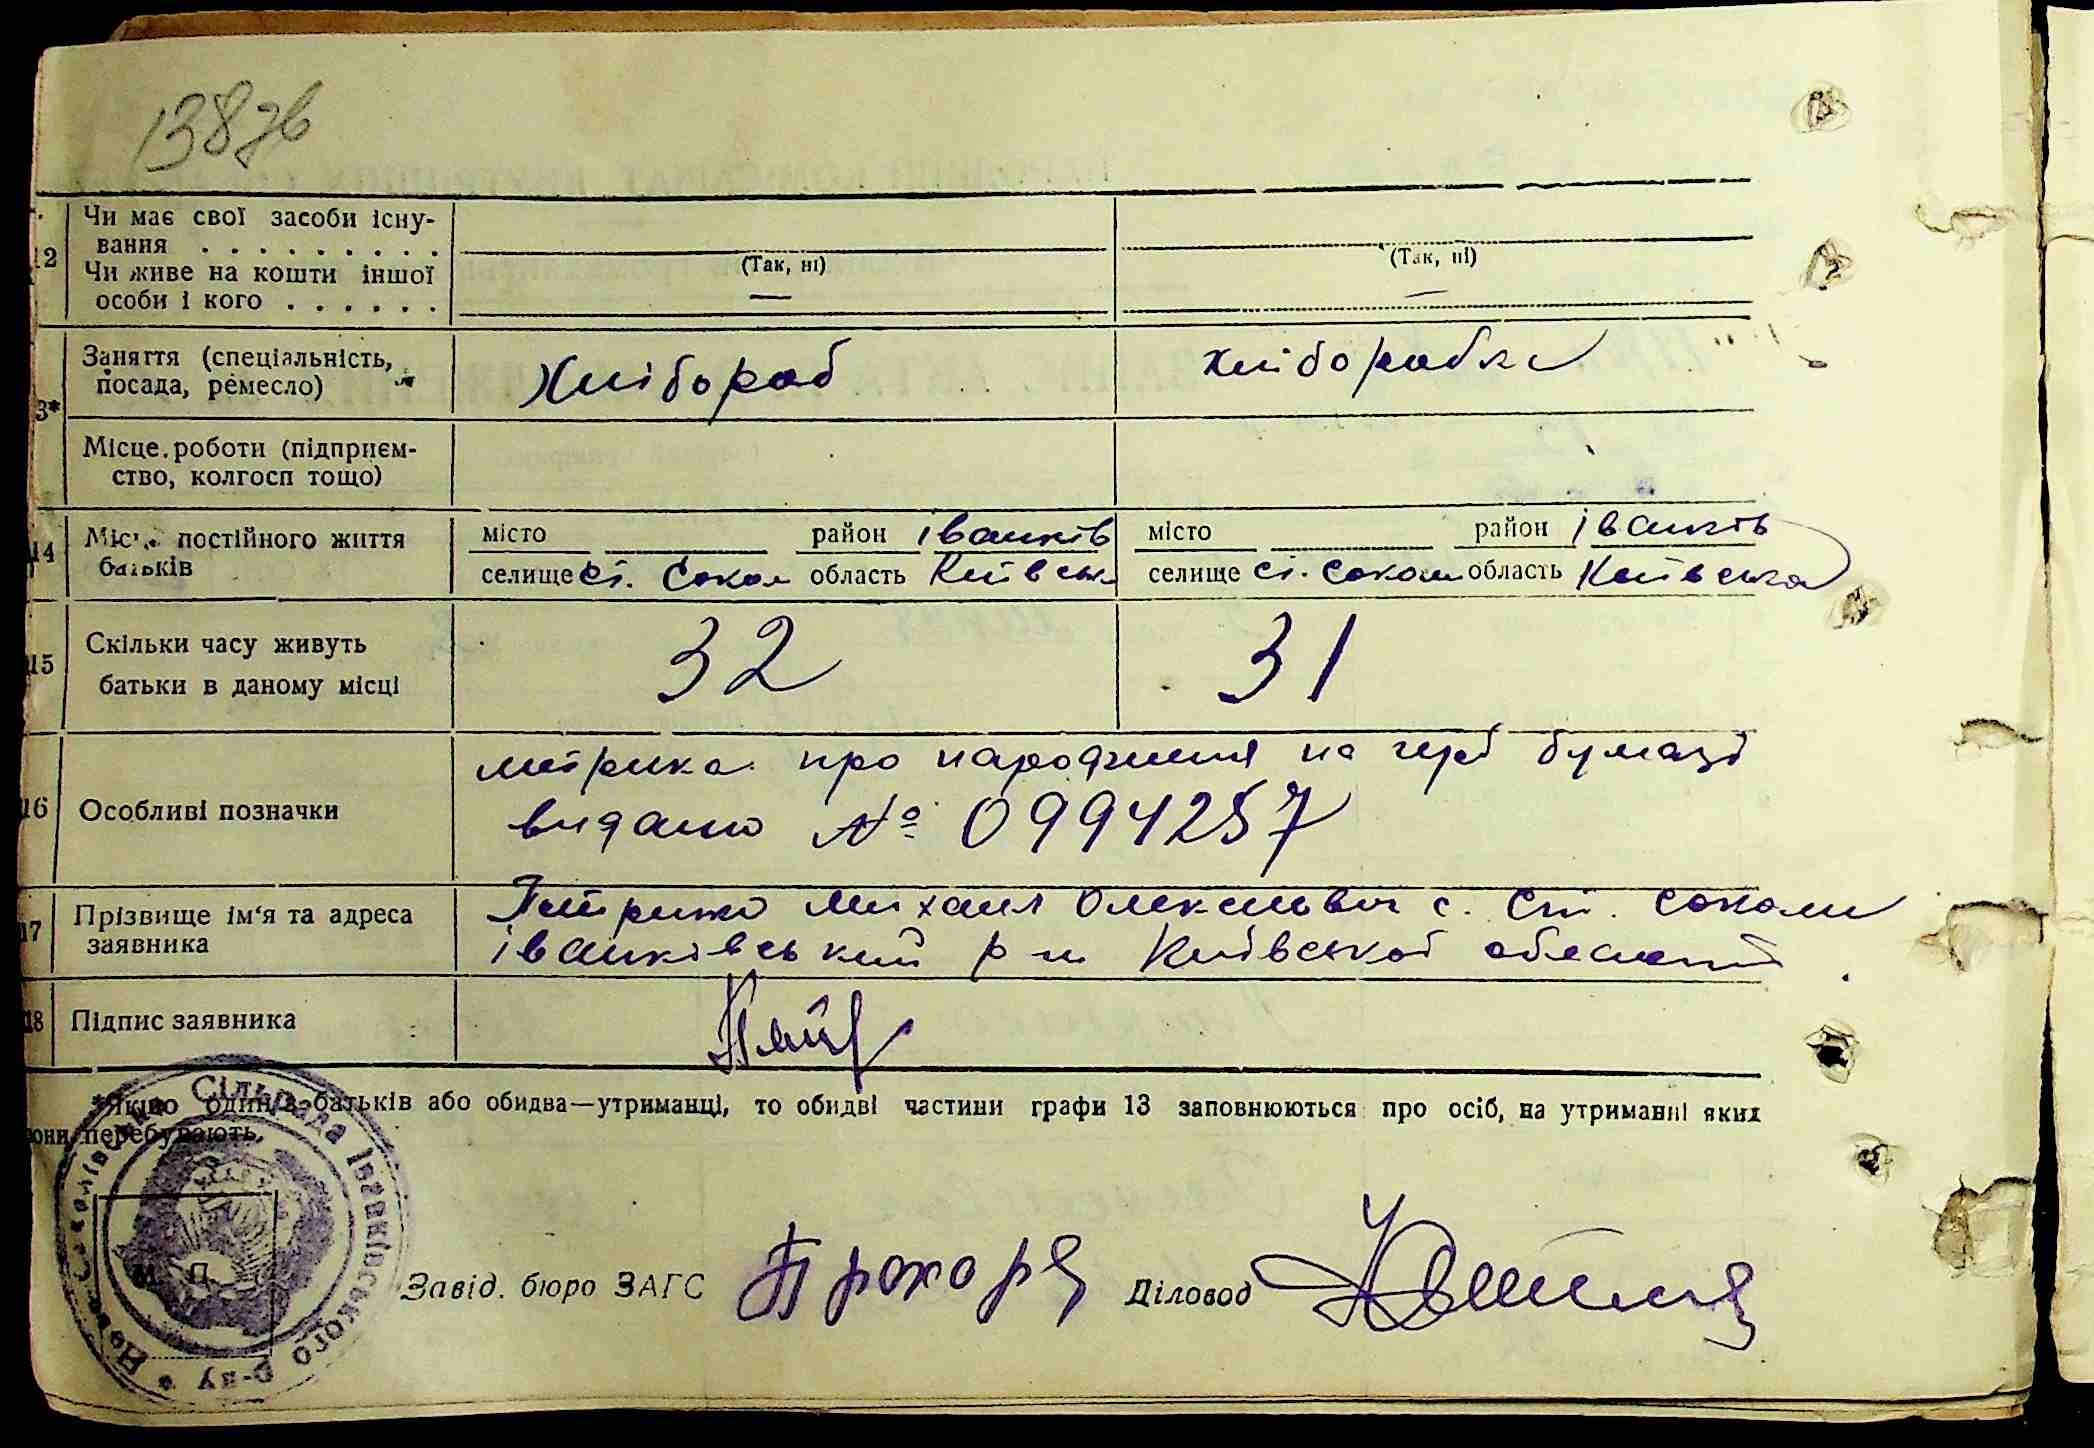 138зв
12 Чи має свої засоби існу-
вання . . . . . . . . .
(Так, ні) (Так, ні)
Чи живе на кошти іншої
особи і кого . . . . . . — —
3* Заняття (спеціальність, посада, ремесло) Хлібороб хліборобка
Місце роботи (підприєм-
ство, колгосп тощо)
14 Місце постійного життя батьків
місто район Іванків місто район Іванків
селище ст. Сокол область Київськ селище ст. Соколи область Київська
15 Скільки часу живуть
батьки в даному місці 32 31
16 Особливі позначки
метрика про народження на герб бумазі
видано № 0994257
17 Прізвище ім'я та адреса
заявника
Михаил Олексієвич с. Ст. Соколи
Іванківський р-н Київської області
18 Підпис заявника
*Якщо один з батьків або обидва—утриманці, то обидві частини графи 13 заповнюються про осіб, на утриманні яких
вони перебувають.
Ново-Соколівська Сільрада Іванківського р-ну
М. П.
Завід. бюро ЗАГС Прохоря Діловод